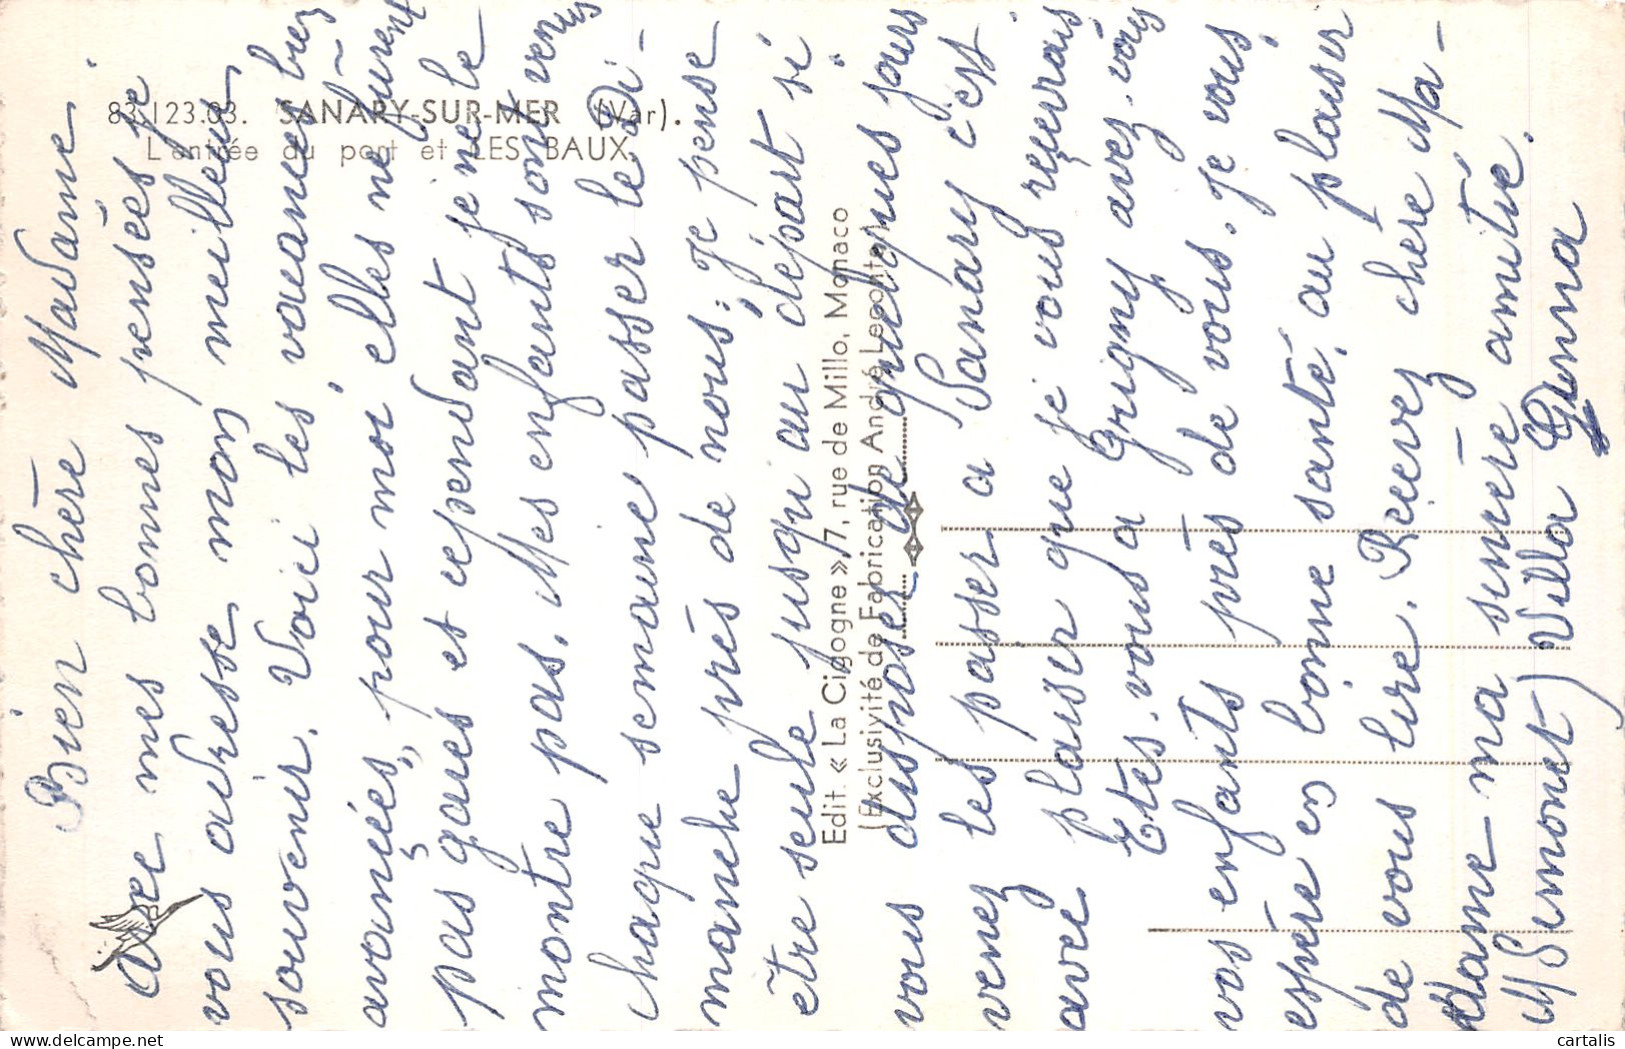 83.123.03. SANARY-SUR-MER (Var).
L'entrée du port et LES BAUX.
Edit. « La Cigogne » 7, rue de Millo, Monaco
(Exclusivité de Fabrication André Leconte)
Bien chère Madame.
Avec mes bonnes pensées je
vous adresse mon meilleur
souvenir. Voici les vacances bien
avancées, pour moi, elles ne furent
pas gaies et cependant je ne le
montre pas. Mes enfants sont venus
chaque semaine passer le Di-
manche près de nous. Je pense
être seule jusqu'au départ si
vous disposez de quelques jours
venez les passer a Sanary c'est
avec plaisir que je vous recevrais
Etes-vous a Grigny avez-vous
vos enfants près de vous. Je vous
espère en bonne santé, au plaisir
de vous lire. Recevez chère Ma-
dame ma sincère amitié.
Villa Gemma
cartalis